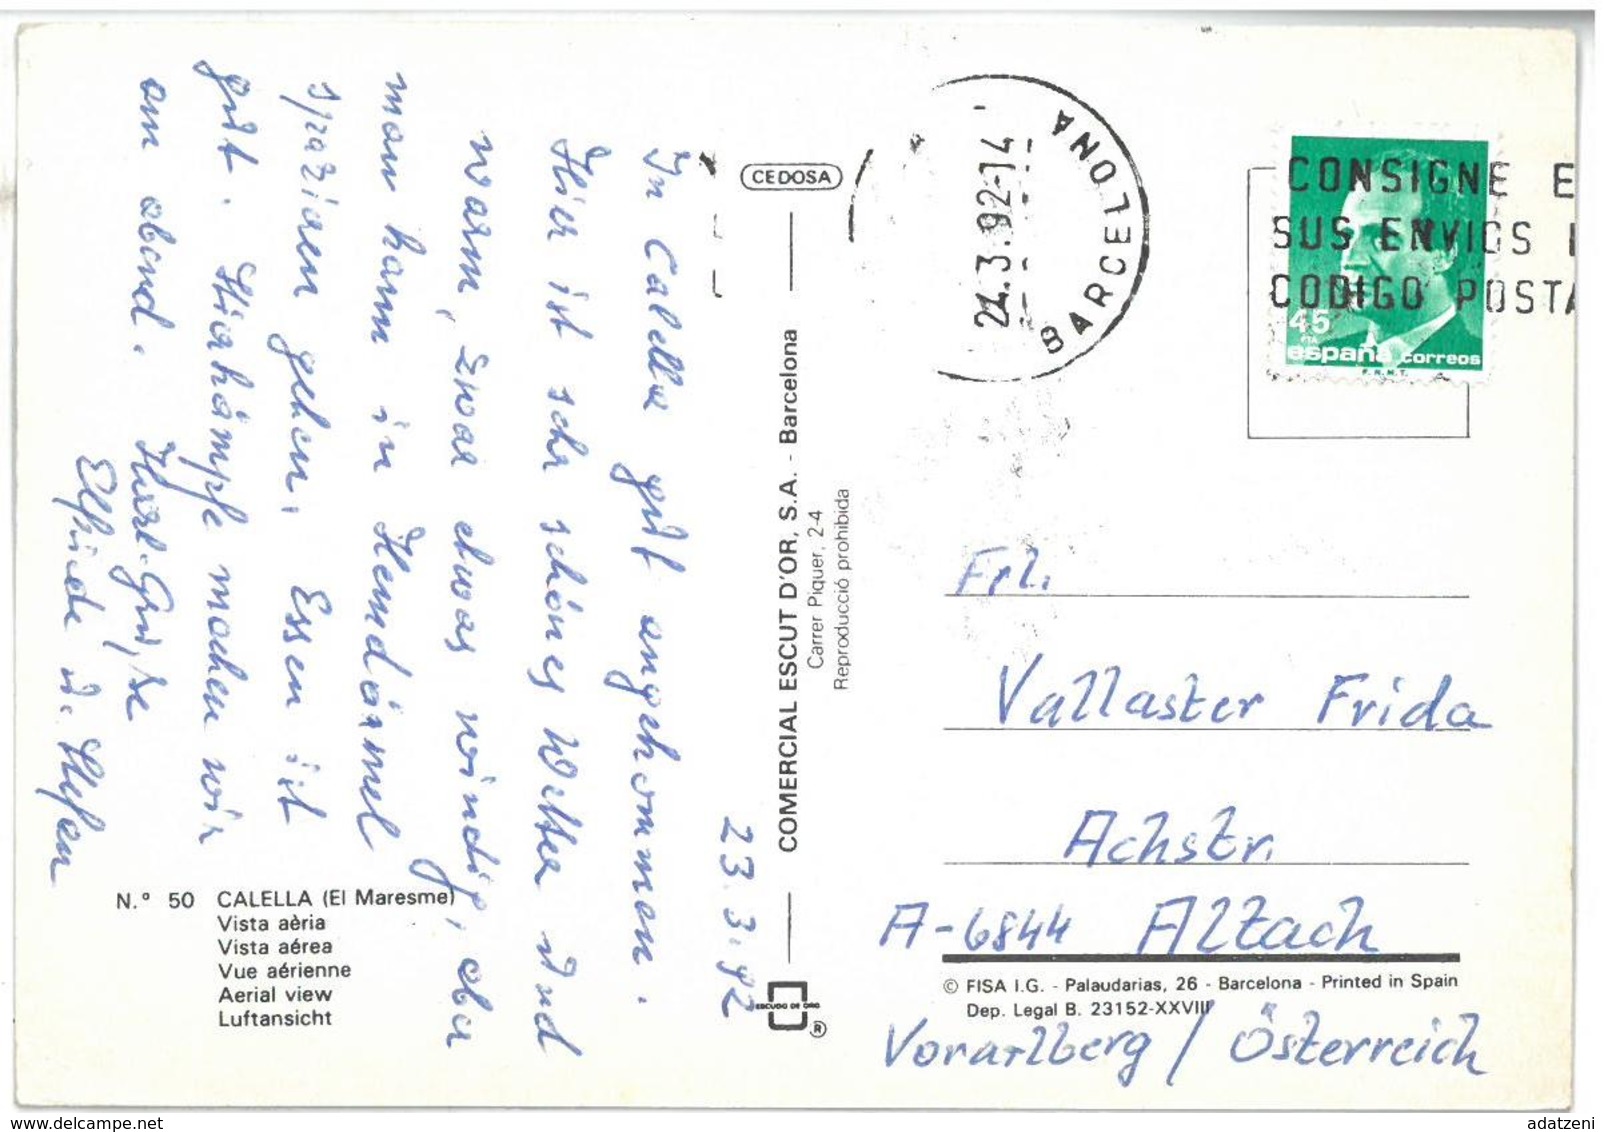 23.3.92
In Calella gut angekommen.
Hier ist sehr schönes Wetter und
warm, zwar etwas windig, aber
man kann in Hemdärmel
spazieren gehen. Essen ist
gut. machen wir
am abend. Grüsse
Elfriede u. Stefan
N.º 50 CALELLA (El Maresme)
Vista aèria
Vista aérea
Vue aérienne
Aerial view
Luftansicht
CEDOSA
COMERCIAL ESCUT D'OR, S.A. - Barcelona
Carrer Piquer, 2-4
Reproducció prohibida
ESCUDO DE ORO
®
BARCELONA
24.3.92-14
CONSIGNE E
SUS ENVIOS
CODIGO POSTA
45
PTA
españa correos
F.N.M.T.
Frl.
Vallaster Frida
Achstr.
A-6844 Altach
© FISA I.G. - Palaudarias, 26 - Barcelona - Printed in Spain
Dep. Legal B. 23152-XXVIII
Vorarlberg / Österreich
www.delcampe.net
adatzeni